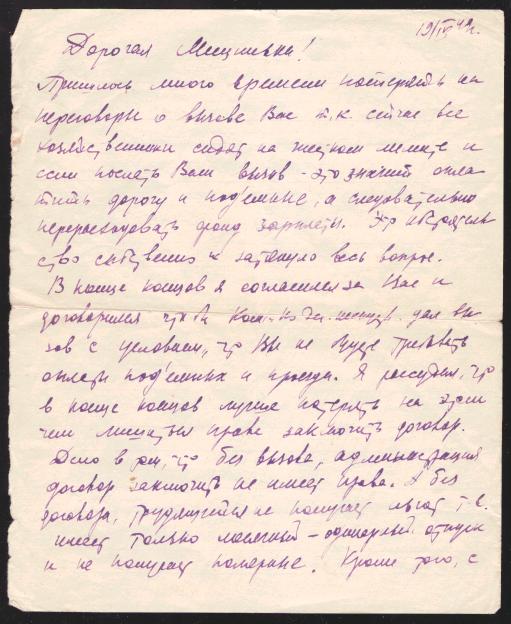 19/IV 49г.
Дорогая !
Пришлось много времени потерять на
переговоры о вызове Вас т.к. сейчас все
хозяйственники сидят на жестком лимите и
если послать Вам вызов - это значит опла
тить дорогу и под'емные, а следовательно
перерасходовать фонд зарплаты. Это обстоятель
ство собственно и затянуло весь вопрос.
В конце концов я согласился за Вас и
договорился чтобы дал вы
зов с условием, что Вы не будете требовать
оплаты под'емных и проезда. Я рассудил, что
в конце концов лучше потерять на этом
чем лишаться права заключить договор.
Дело в том, что без вызова, администрация
договор заключить не имеет права. А без
договора, трудящийся не получает льгот т.е.
имеет только месячный - одинарный отпуск
и не получает полярные. Кроме того, с